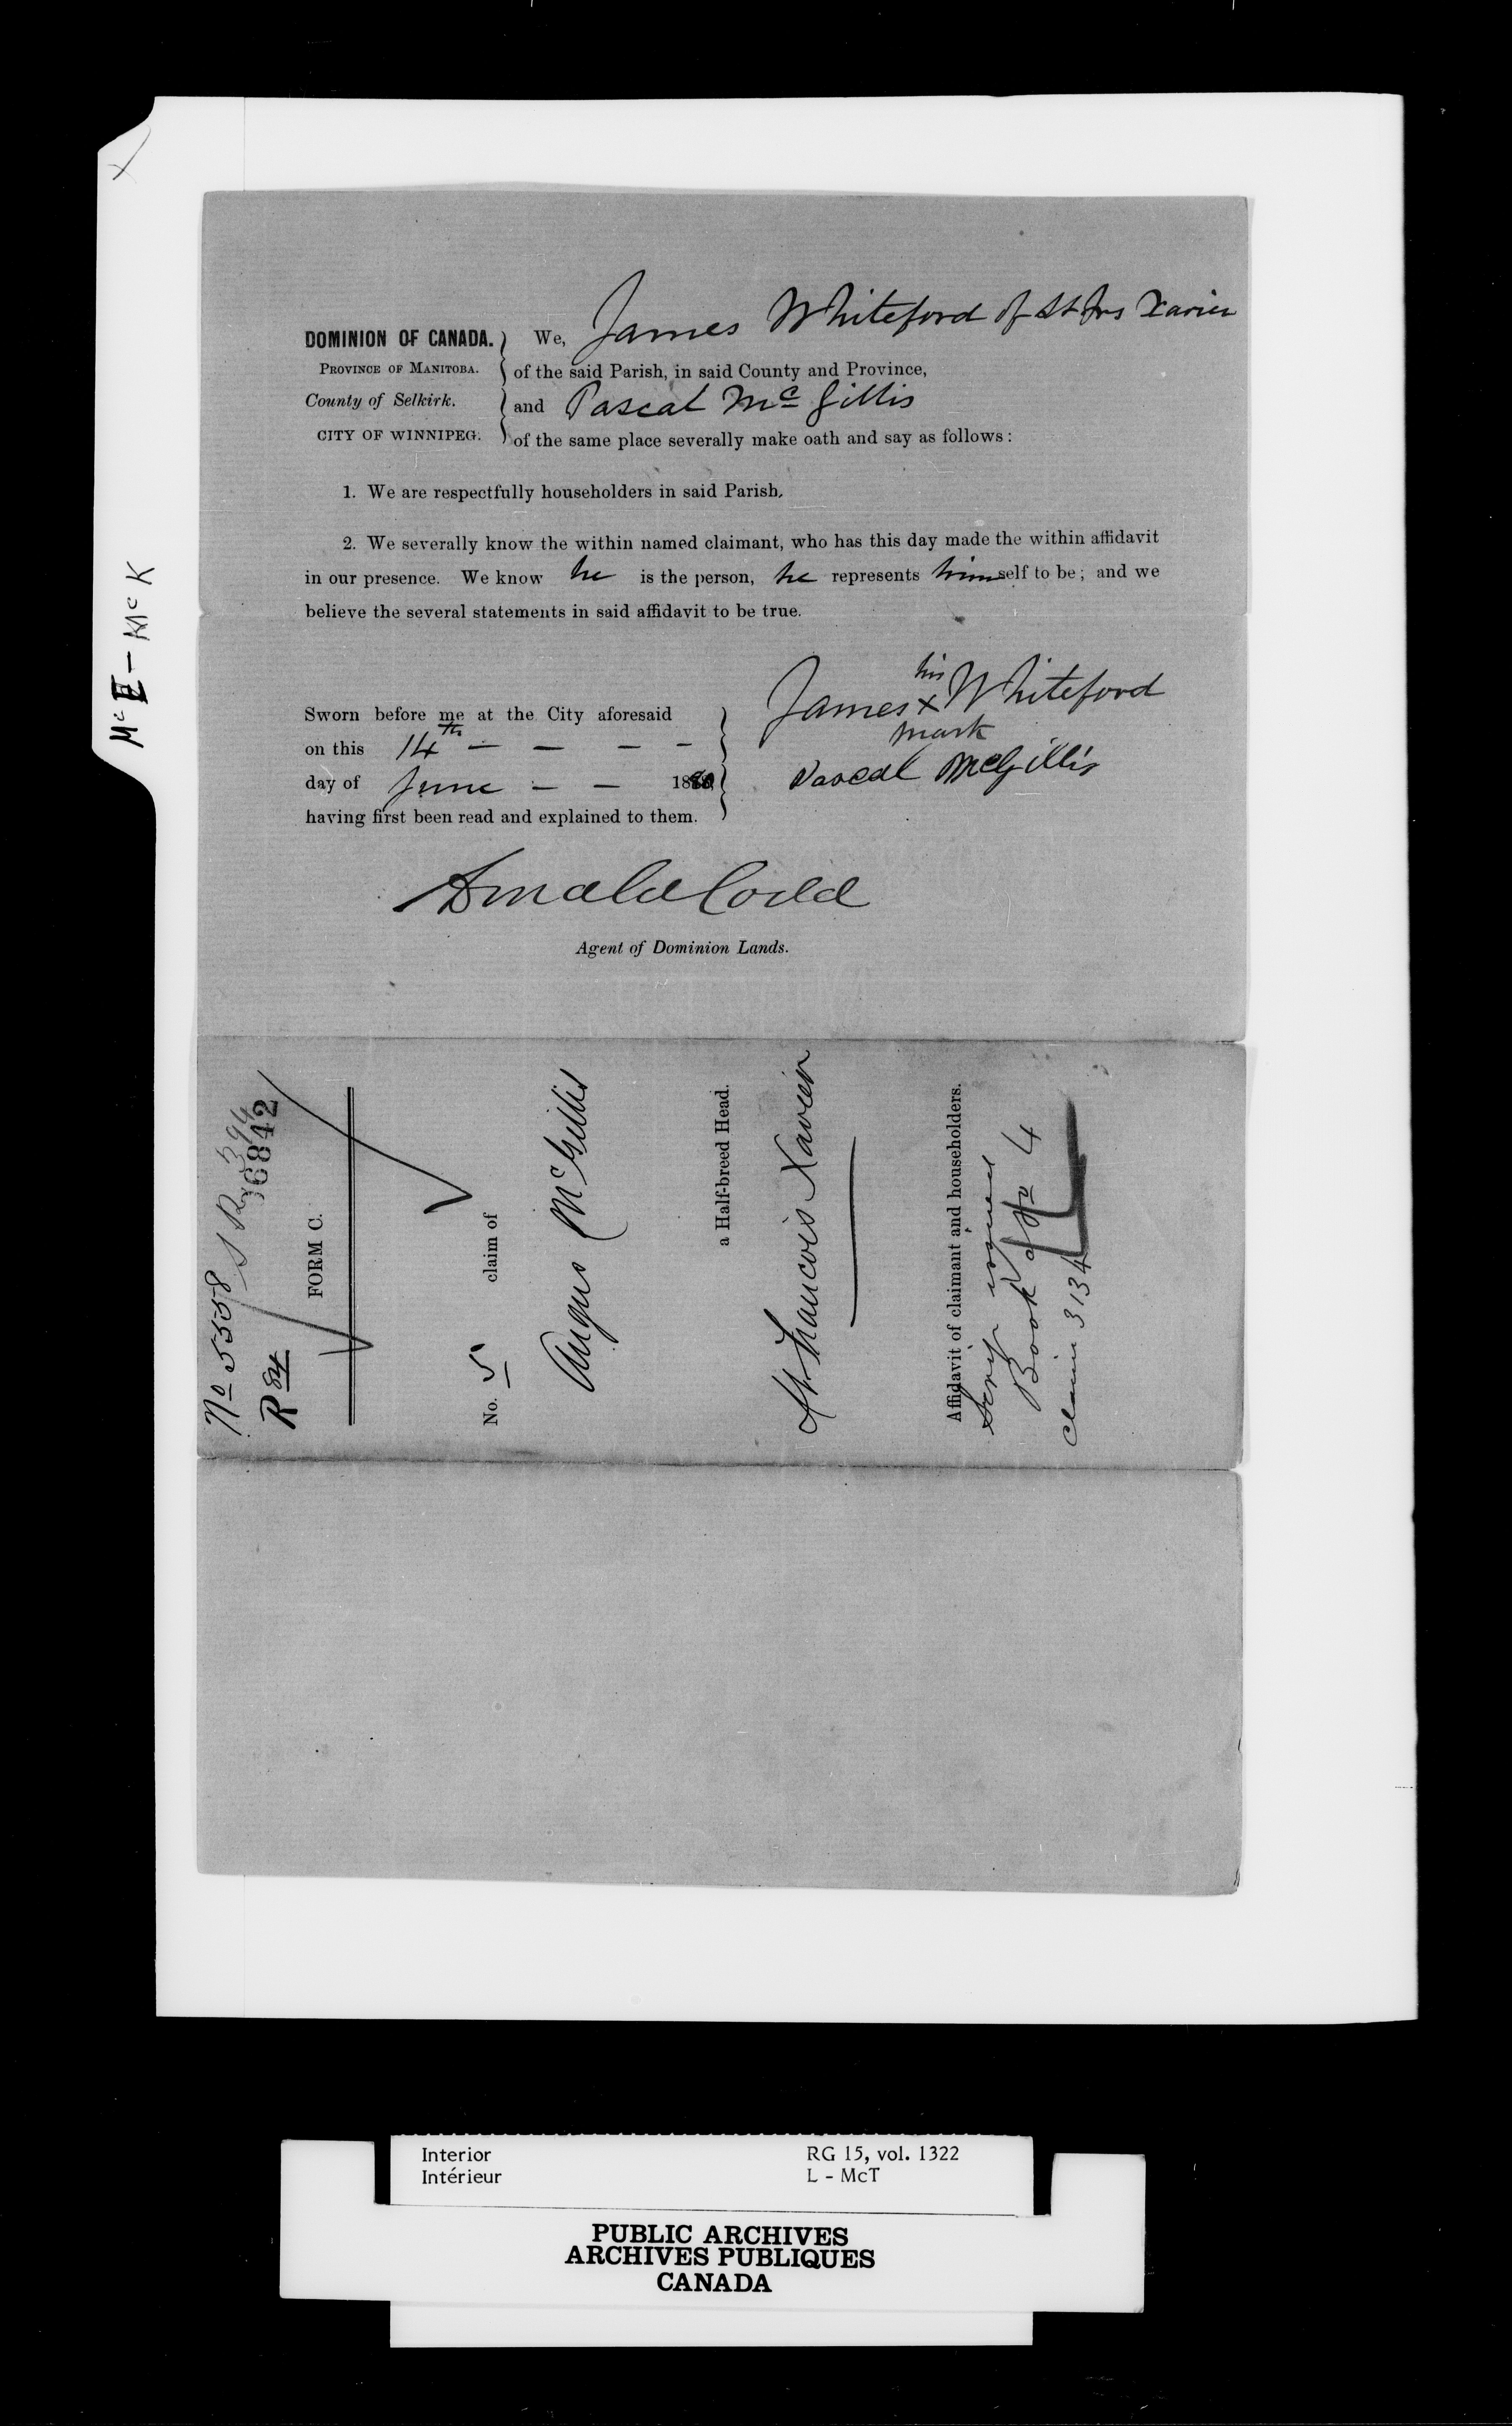 Mc E - Mc K
DOMINION OF CANADA.
PROVINCE OF MANITOBA.
County of Selkirk.
CITY OF WINNIPEG.
We, James Whiteford of St Frs Xavier
of the said Parish, in said County and Province,
and Pascal Mc Gillis
of the same place severally make oath and say as follows:
1. We are respectfully householders in said Parish.
2. We severally know the within named claimant, who has this day made the within affidavit
in our presence. We know he is the person, he represents himself to be; and we
believe the several statements in said affidavit to be true.
Sworn before me at the City aforesaid
on this 14th
day of June 1880
having first been read and explained to them.
his
James X Whiteford
mark
Pascal McGillis
Agent of Dominion Lands.
No 5558
R 84
36842
FORM C.
No. 5 claim of
Angus McGillis
a Half-breed Head.
St Francois Xavier
Affidavit of claimant and householders.
Scrip issued
Book No 4
Claim 3134
Interior
Intérieur
RG 15, vol. 1322
L - McT
PUBLIC ARCHIVES
ARCHIVES PUBLIQUES
CANADA